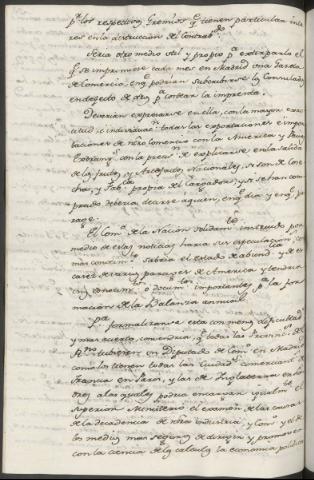 p.r los respectivos Gremios q.e tienen particular inte
res en la destruccion del Contrav.do
Seria otro medio util y propio p.a extirparla el
q.e se imprimiese cada mes en Madrid una Gazeta
de Comercio, en q.e podrian subscribirse los Consulados
en defecto de otros p.a costear la imprenta.
Deverian expresarse en ella, con la mayor exac
titud è individuac.n todas las exportaciones è impor
taciones de nro Comercio con la America y Paises
Extrang.s con la precis.n de explicarse en la salida
de los frutos, y Artefactos Nacionales, si son de Cose
cha, y Fab.ca propia del Cargador, y si se han com
prado deberia decirse à quien, en q.e dia y en q.e pa
rage.
El Com.o de la Nacion solidam.te instruido por
medio de estas noticias haria sus especulaciones con
mas conocim.to sabria el estado de abund.cia y de es
cases de varios parages de America y tendria
un conocim.to ò docum.tos importantes p.a la for
macion de la Balanza annual.
P.a formalizarse esta con menos dificultad
y mas acierto, convendria q.e todas las Provin.s de
tubiesen un Diputado de Com.o en Madrid
como los tienen todas las Ciudad.s comerciant.s de
Francia en Paris, y las de Inglaterra en Lon
dres, à los quales podria encargar igualm.te el
superior Ministerio el examen de las causas
de la decadencia de nra industria, y Com.o y el de
los medios mas seguros de dirigir y promover
con la ciencia de los calculos la economia politica